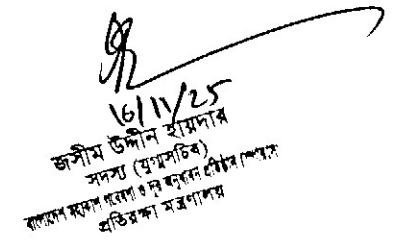 16/11/25
জসীম উদ্দীন হায়দার
সদস্য (যুগ্মসচিব)
বাংলাদেশ মহাকাশ গবেষণা ও দূর অনুধাবন প্রতিষ্ঠান
প্রতিরক্ষা মন্ত্রণালয়